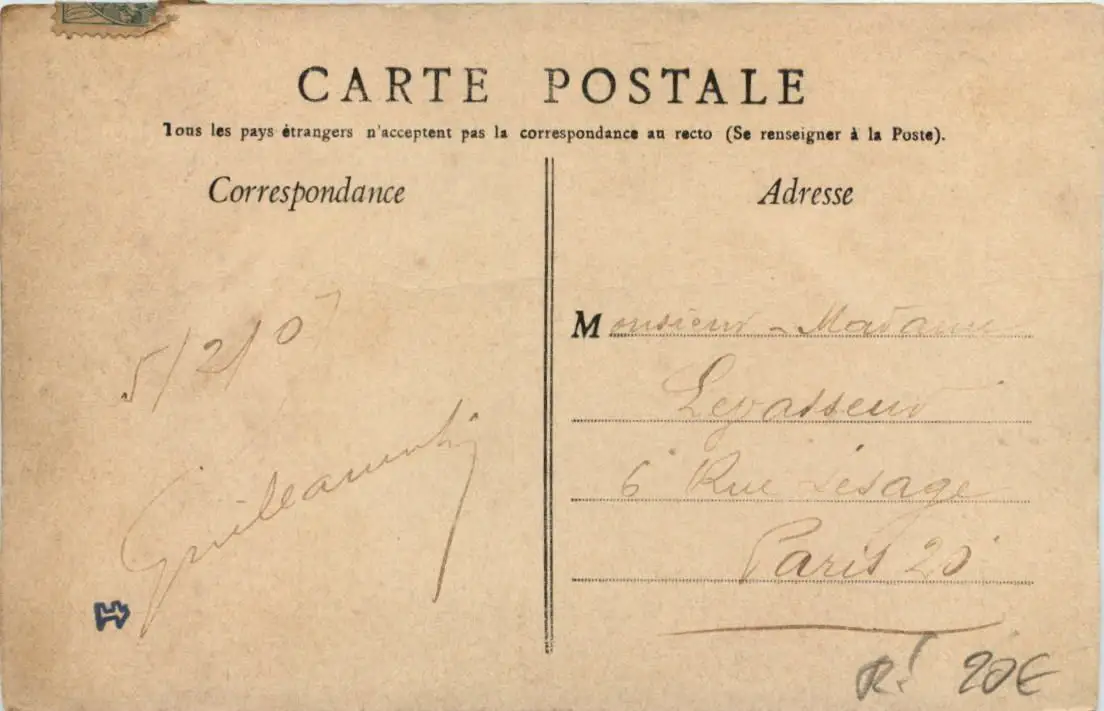 CARTE POSTALE
Tous les pays étrangers n'acceptent pas la correspondance au recto (Se renseigner à la Poste).
Correspondance
Adresse
5/2/07
Monsieur - Madame
Levasseur
6 Rue Lesage
Paris 20
R! 20€